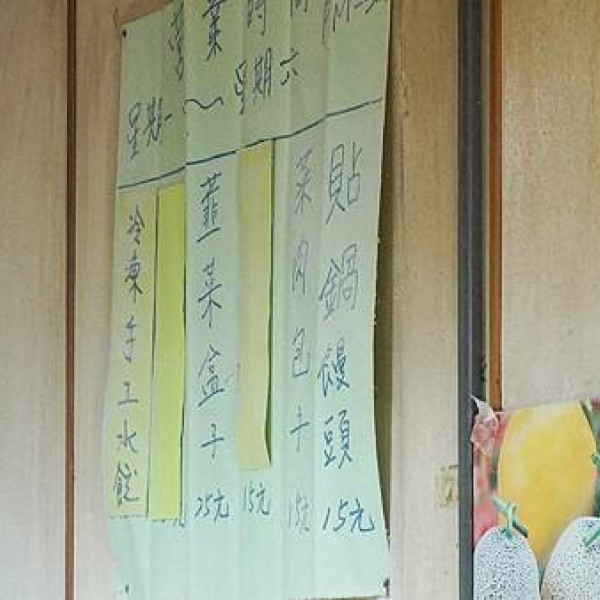 營業時間
星期一～星期六
貼鍋饅頭 15元
菜肉包子 15元
15元
韮菜盒子 25元
冷凍手工水餃